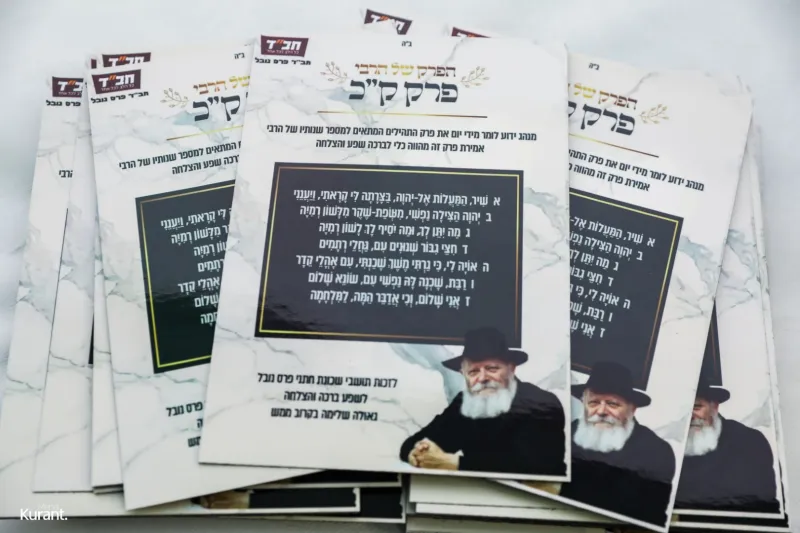 חב"ד
בכל הלב, לכל אחד
חב"ד פרס נובל
ב"ה
הפרק של הרבי
פרק ק"כ
מנהג ידוע לומר מידי יום את פרק התהילים המתאים למספר שנותיו של הרבי
אמירת פרק זה מהווה כלי לברכה שפע והצלחה
א שִׁיר, הַמַּעֲלוֹת אֶל-יְהוָה, בַּצָּרָתָה לִּי קָרָאתִי, וַיַּעֲנֵנִי
ב יְהוָה הַצִּילָה נַפְשִׁי, מִשְּׂפַת-שֶׁקֶר מִלָּשׁוֹן רְמִיָּה
ג מַה יִּתֵּן לְךָ, וּמַה יֹּסִיף לָךְ לָשׁוֹן רְמִיָּה
ד חִצֵּי גִבּוֹר שְׁנוּנִים עִם, גַּחֲלֵי רְתָמִים
ה אוֹיָה לִי, כִּי גַרְתִּי מֶשֶׁךְ שָׁכַנְתִּי, עִם אָהֳלֵי קֵדָר
ו רַבַּת, שָׁכְנָה לָּהּ נַפְשִׁי עִם, שׂוֹנֵא שָׁלוֹם
ז אֲנִי שָׁלוֹם, וְכִי אֲדַבֵּר הֵמָּה, לַמִּלְחָמָה
לזכות תושבי שכונת חתני פרס נובל
לשפע ברכה והצלחה
גאולה שלימה בקרוב ממש
חב"ד
חב"ד פרס נובל
ב"ה
הפרק של הרבי
פרק ק"כ
Kurant.